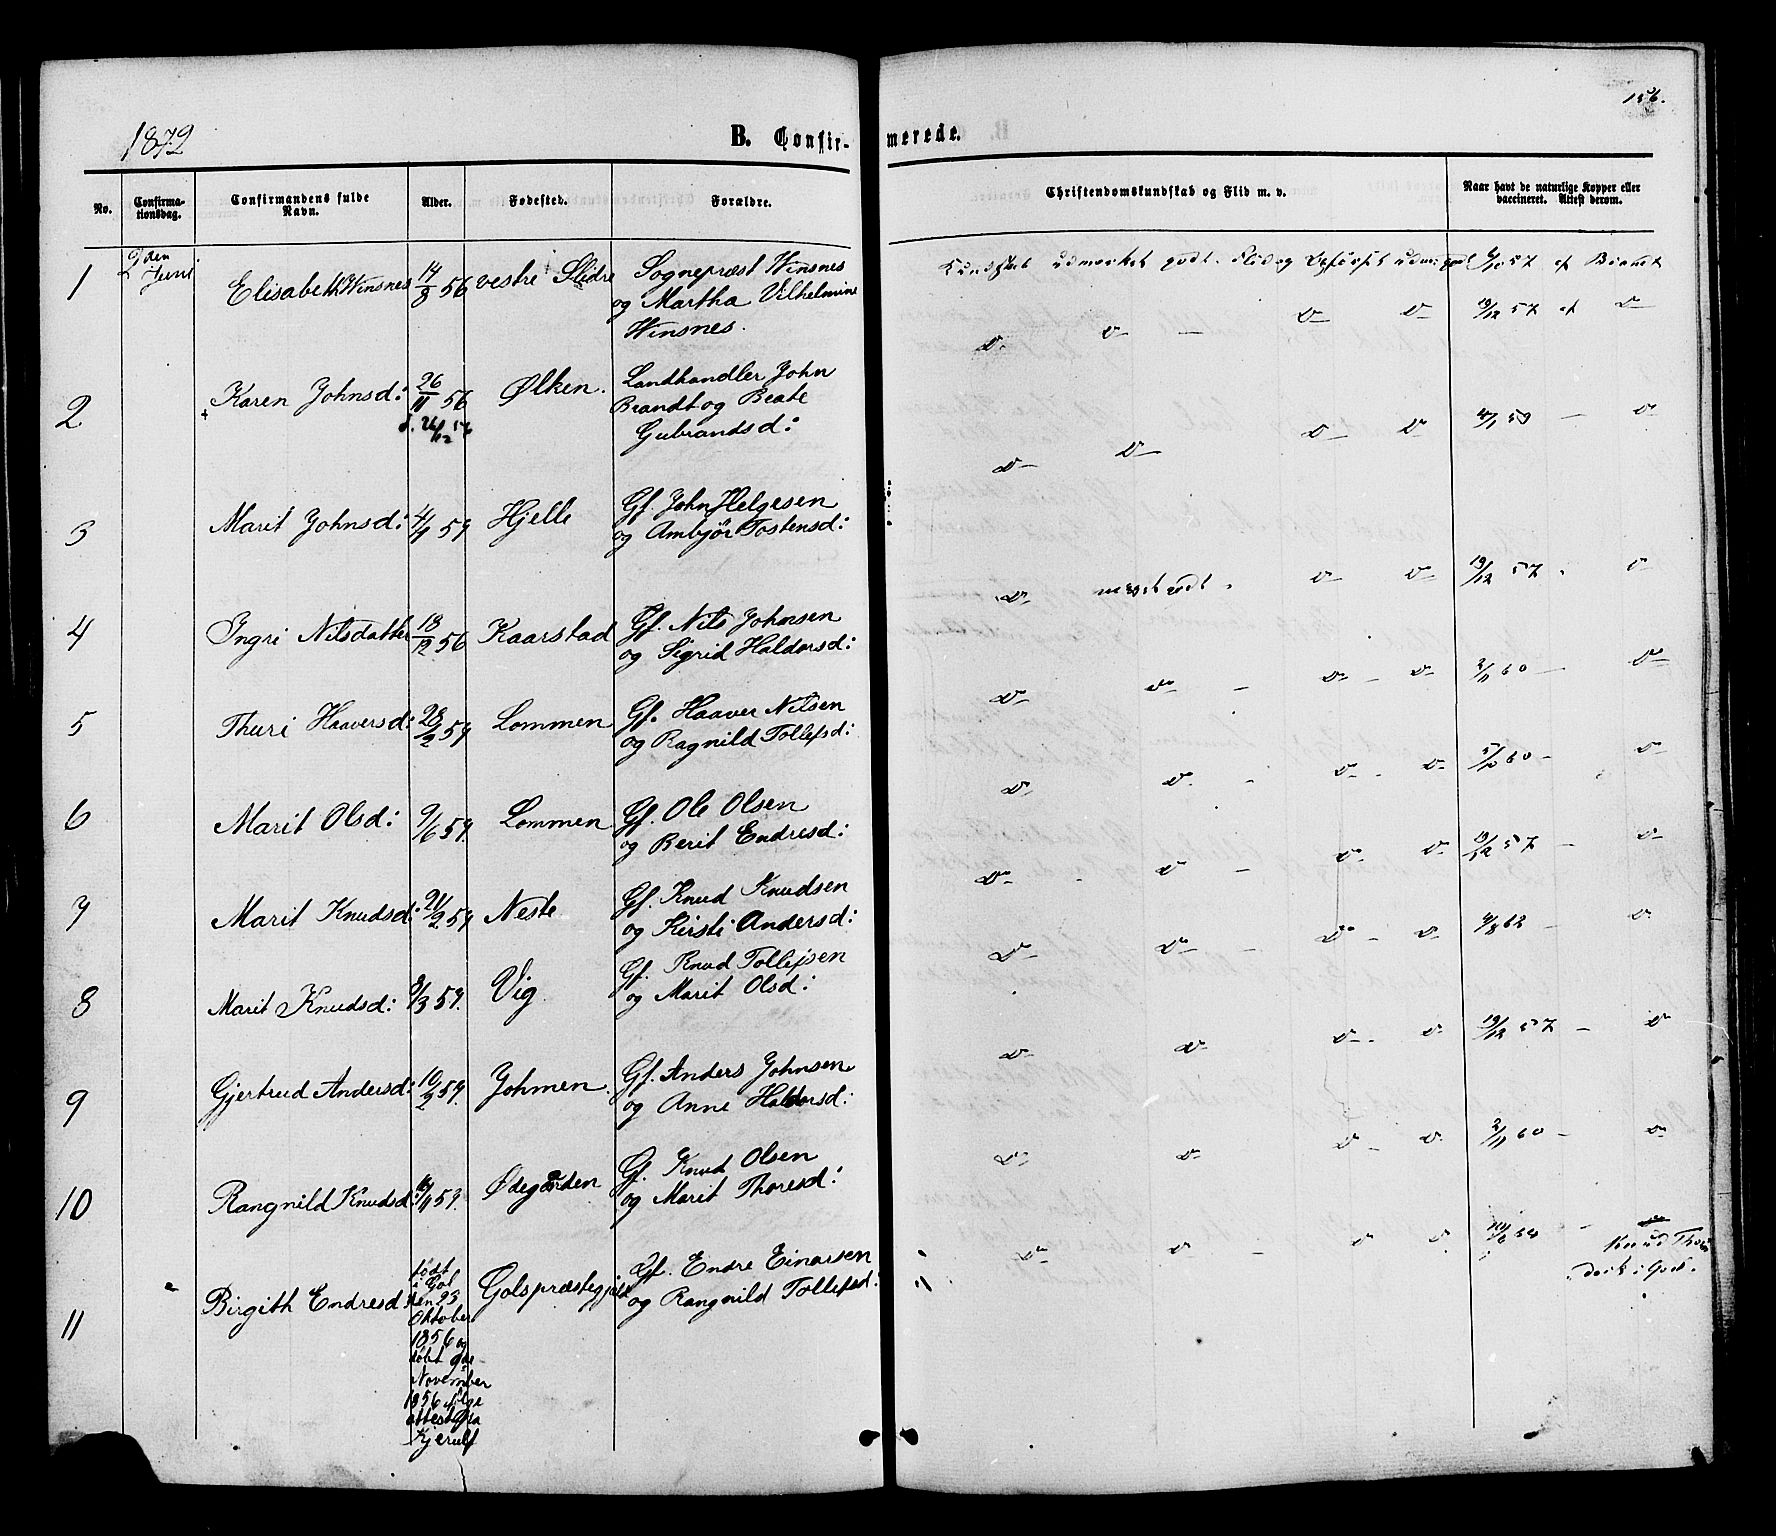 1872
B. Confir-
merede.
156.
No.
Confirma-
tionsdag.
Confirmandens fulde
Navn.
Alder.
Fødested.
Forældre.
Christendomskundskab og Flid m. v.
Naar havt de naturlige Kopper eller
vaccineret. Attest derom.
1
2 den
Juni
Elisabeth Winsnes
14/8 56
vestre Slidre
Sognepræst Winsnes
og Martha Vilhelmine
Winsnes.
Kundskab udmerket godt. Flid og Opførsel
57 af Brandt
2
Karen Johnsd:
26/11 56
d. 26/12 56
Ølken.
Landhandler John
Brandt og Beate
Gubrandsd:
D- D- - D- D- 19/12 57 af D-
3
Marit Johnsd:
4/9 57
Hjelle
Gf. John Helgesen
og Ambjør Tostensd:
D- D- D- D- 59 - D-
4
Ingri Nilsdatter
18/12 56
Kaarstad
Gf. Nils Johnsen
og Sigrid Haldorsd:
D- meget godt. D- D- 19/12 57 . D-
5
Thuri Haaversd:
28/2 57
Lommen
Gf. Haaver Nilsen
og Ragnild Tollefsd:
D- D- - D- - D- 2/11 60 - D-
6
Marit Olsd:
9/6 57.
Lommen
Gf. Ole Olsen
og Berit Endresd:
D- D- - D- - D- 5/10 60 - D-
7
Marit Knudsd:
21/2 57
Neste
Gf. Knud Knudsen
og Kirsti Andersd:
D- - D- - D- D- 19/12 57 - D-
8
Marit Knudsd:
8/3 57.
Vig
Gf. Knud Tollefsen
og Marit Olsd:
D- D- - D- - D- 9/8 62 - D-
9
Gjertrud Andersd:
10/2 57.
Johmen.
Gf. Anders Johnsen
og Anne Haldorsd:
D- D- D- D- 19/12 57 - D-
10
Rangnild Knudsd:
57.
Ødegården
Gf. Knud Olsen
og Marit Thoresd:
D- D- D- D- 2/11 60 - D-
11
Birgith Endresd:
født
i Gol
den 23
Oktober
1856 og
døbt 9de
November
1856 ifølge
attest fra
Kjerulf
Golspræstegjeld
Gf. Endre Einarsen
og Rangnild Tollefsd:
D- D- - D- D-
Knud